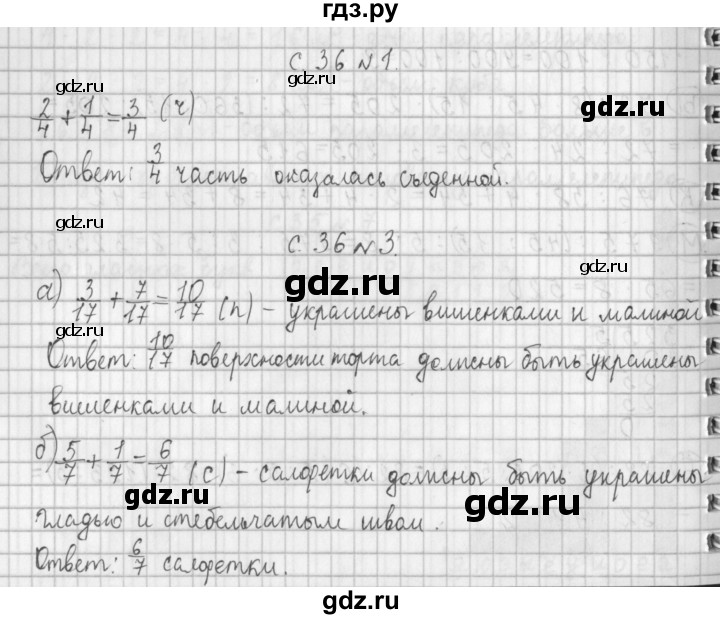 гдз.ру
с. 36 № 1.
gdz.ru gdz.ru
gdz.ru
2/4 + 1/4 = 3/4 (ч)
Ответ: 3/4 часть оказалась съеденной.
gdz.ru
с. 36 № 3.
gdz.ru gdz.ru
а) 3/17 + 7/17 = 10/17 (п) – украшены вишенками и малиной
Ответ: 10/17 поверхности торта должны быть украшены
вишенками и малиной.
б) 5/7 + 1/7 = 6/7 (с) – салфетки должны быть украшены
gdz.ru gdz.ru
гладью и стебельчатым швом.
Ответ: 6/7 салфетки.
gdz.ru